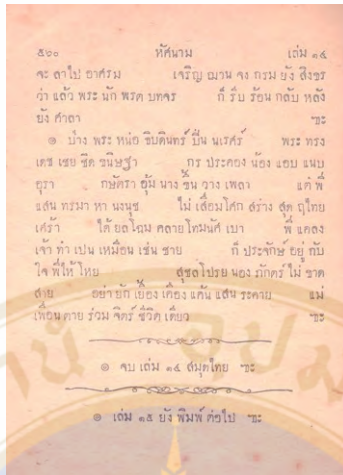 ๕๖๐ หัศนาม เล่ม ๑๔
จะ ลาไป อาศรม เจริญ ฌาน จง กรม ยัง สิงขร
ว่า แล้ว พระ นัก พรต บทจร ก็ รีบ ร้อน กลับ หลัง
ยัง ศาลา ฯะ
๏ ปาง พระ หน่อ ธิบดินทร์ ปิ่น นเรศร์ พระ ทรง
เดช เชย ชิด ขนิษฐา กร ประคอง น้อง แอบ แนบ
อุรา กษัตรา อุ้ม นาง ขึ้น วาง เพลา แต่ พี่
แสน ทรมา หา นงนุช ไม่ เสื่อมโศก สร่าง สุด ฤไทย
เศร้า ได้ ยลโฉม คลาย โทมนัศ เบา พี่ แคลง
เจ้า ทำ เปน เหมือน เช่น ชาย ก็ ประจักษ์ อยู่ กับ
ใจ พี่ให้ โหย สุชลโปรย นอง ภักตร์ ไม่ ขาด
สาย อย่า ยัก เยื้อง เคือง แค้น แสน ระคาย แม่
เพื่อน ตาย ร่วม จิตร์ ชีวิต เดียว ฯะ
๏ จบ เล่ม ๑๔ สมุดไทย ฯะ
๏ เล่ม ๑๕ ยัง พิมพ์ ต่อไป ฯะ